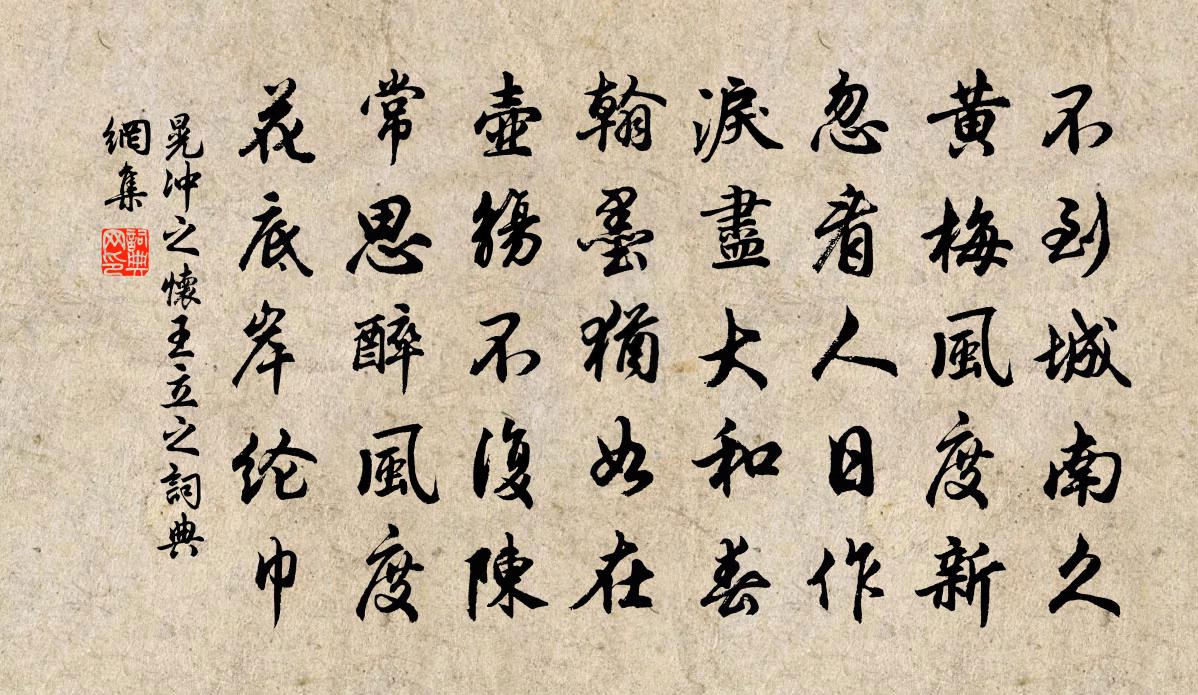 不到城南久
黄梅風度新
忽看人日作
淚盡大和春
翰墨猶如在
壺觴不復陳
常思醉風度
花底岸纶巾
晁冲之懷王立之詞典
網集
詞典
网印